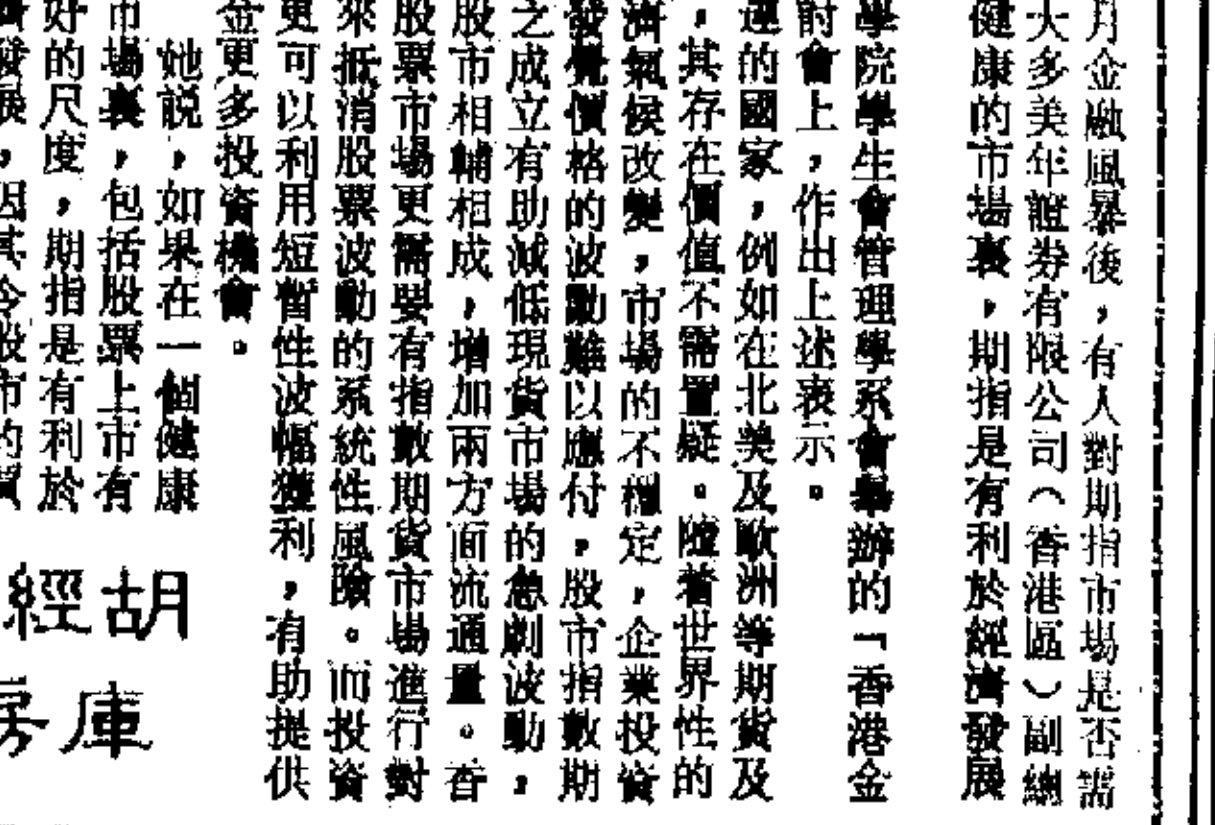 月金融風暴後，有人對期指市場是否需
大多美年證券有限公司（香港區）副總
健康的市場裏，期指是有利於經濟發展
學院學生會管理學系會舉辦的「香港金
討會上，作出上述表示。
達的國家，例如在北美及歐洲等期貨及
，其存在價值不需置疑。隨着世界性的
濟氣候改變，市場的不穩定，企業投資
發覺價格的波動難以應付，股市指數期
之成立有助減低現貨市場的急劇波動，
股市相輔相成，增加兩方面流通量。香
股票市場更需要有指數期貨市場進行對
來抵消股票波動的系統性風險。而投資
更可以利用短暫性波幅獲利，有助提供
金更多投資機會。
她說，如果在一個健康
市場裏，包括股票上市有
好的尺度，期指是有利於
發展，因其令股市的質
胡
經
庫
房